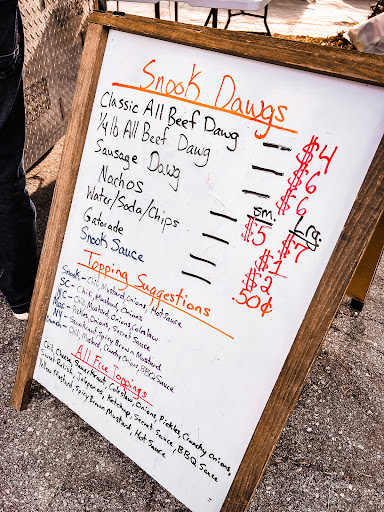 Snook Dawgs
Classic All Beef Dawg — $4
1/4 lb All Beef Dawg — $6
Sausage Dawg — $6
sm. Lrg.
Nachos — $5 — $7
Water/Soda/Chips — $1
Gatorade — $2
Snook Sauce — .50¢
Topping Suggestions
Snook - Chili, Mustard, Onions, Hot Sauce
SC - Chili, Mustard, Onions, Coleslaw
- Chili, Mustard, Onions
- Pickles, Onions, Secret Sauce
NY - Sauerkraut, Spicy Brown Mustard
- Chili, Mustard, Crunchy Onions, BBQ Sauce
All Free Toppings
Chili, Cheese, Sauerkraut, Coleslaw, Onions, Pickles, Crunchy Onions,
Sweet Relish, Jalapenos, Ketchup, Secret Sauce, BBQ Sauce
Yellow Mustard, Spicy Brown Mustard, Hot Sauce